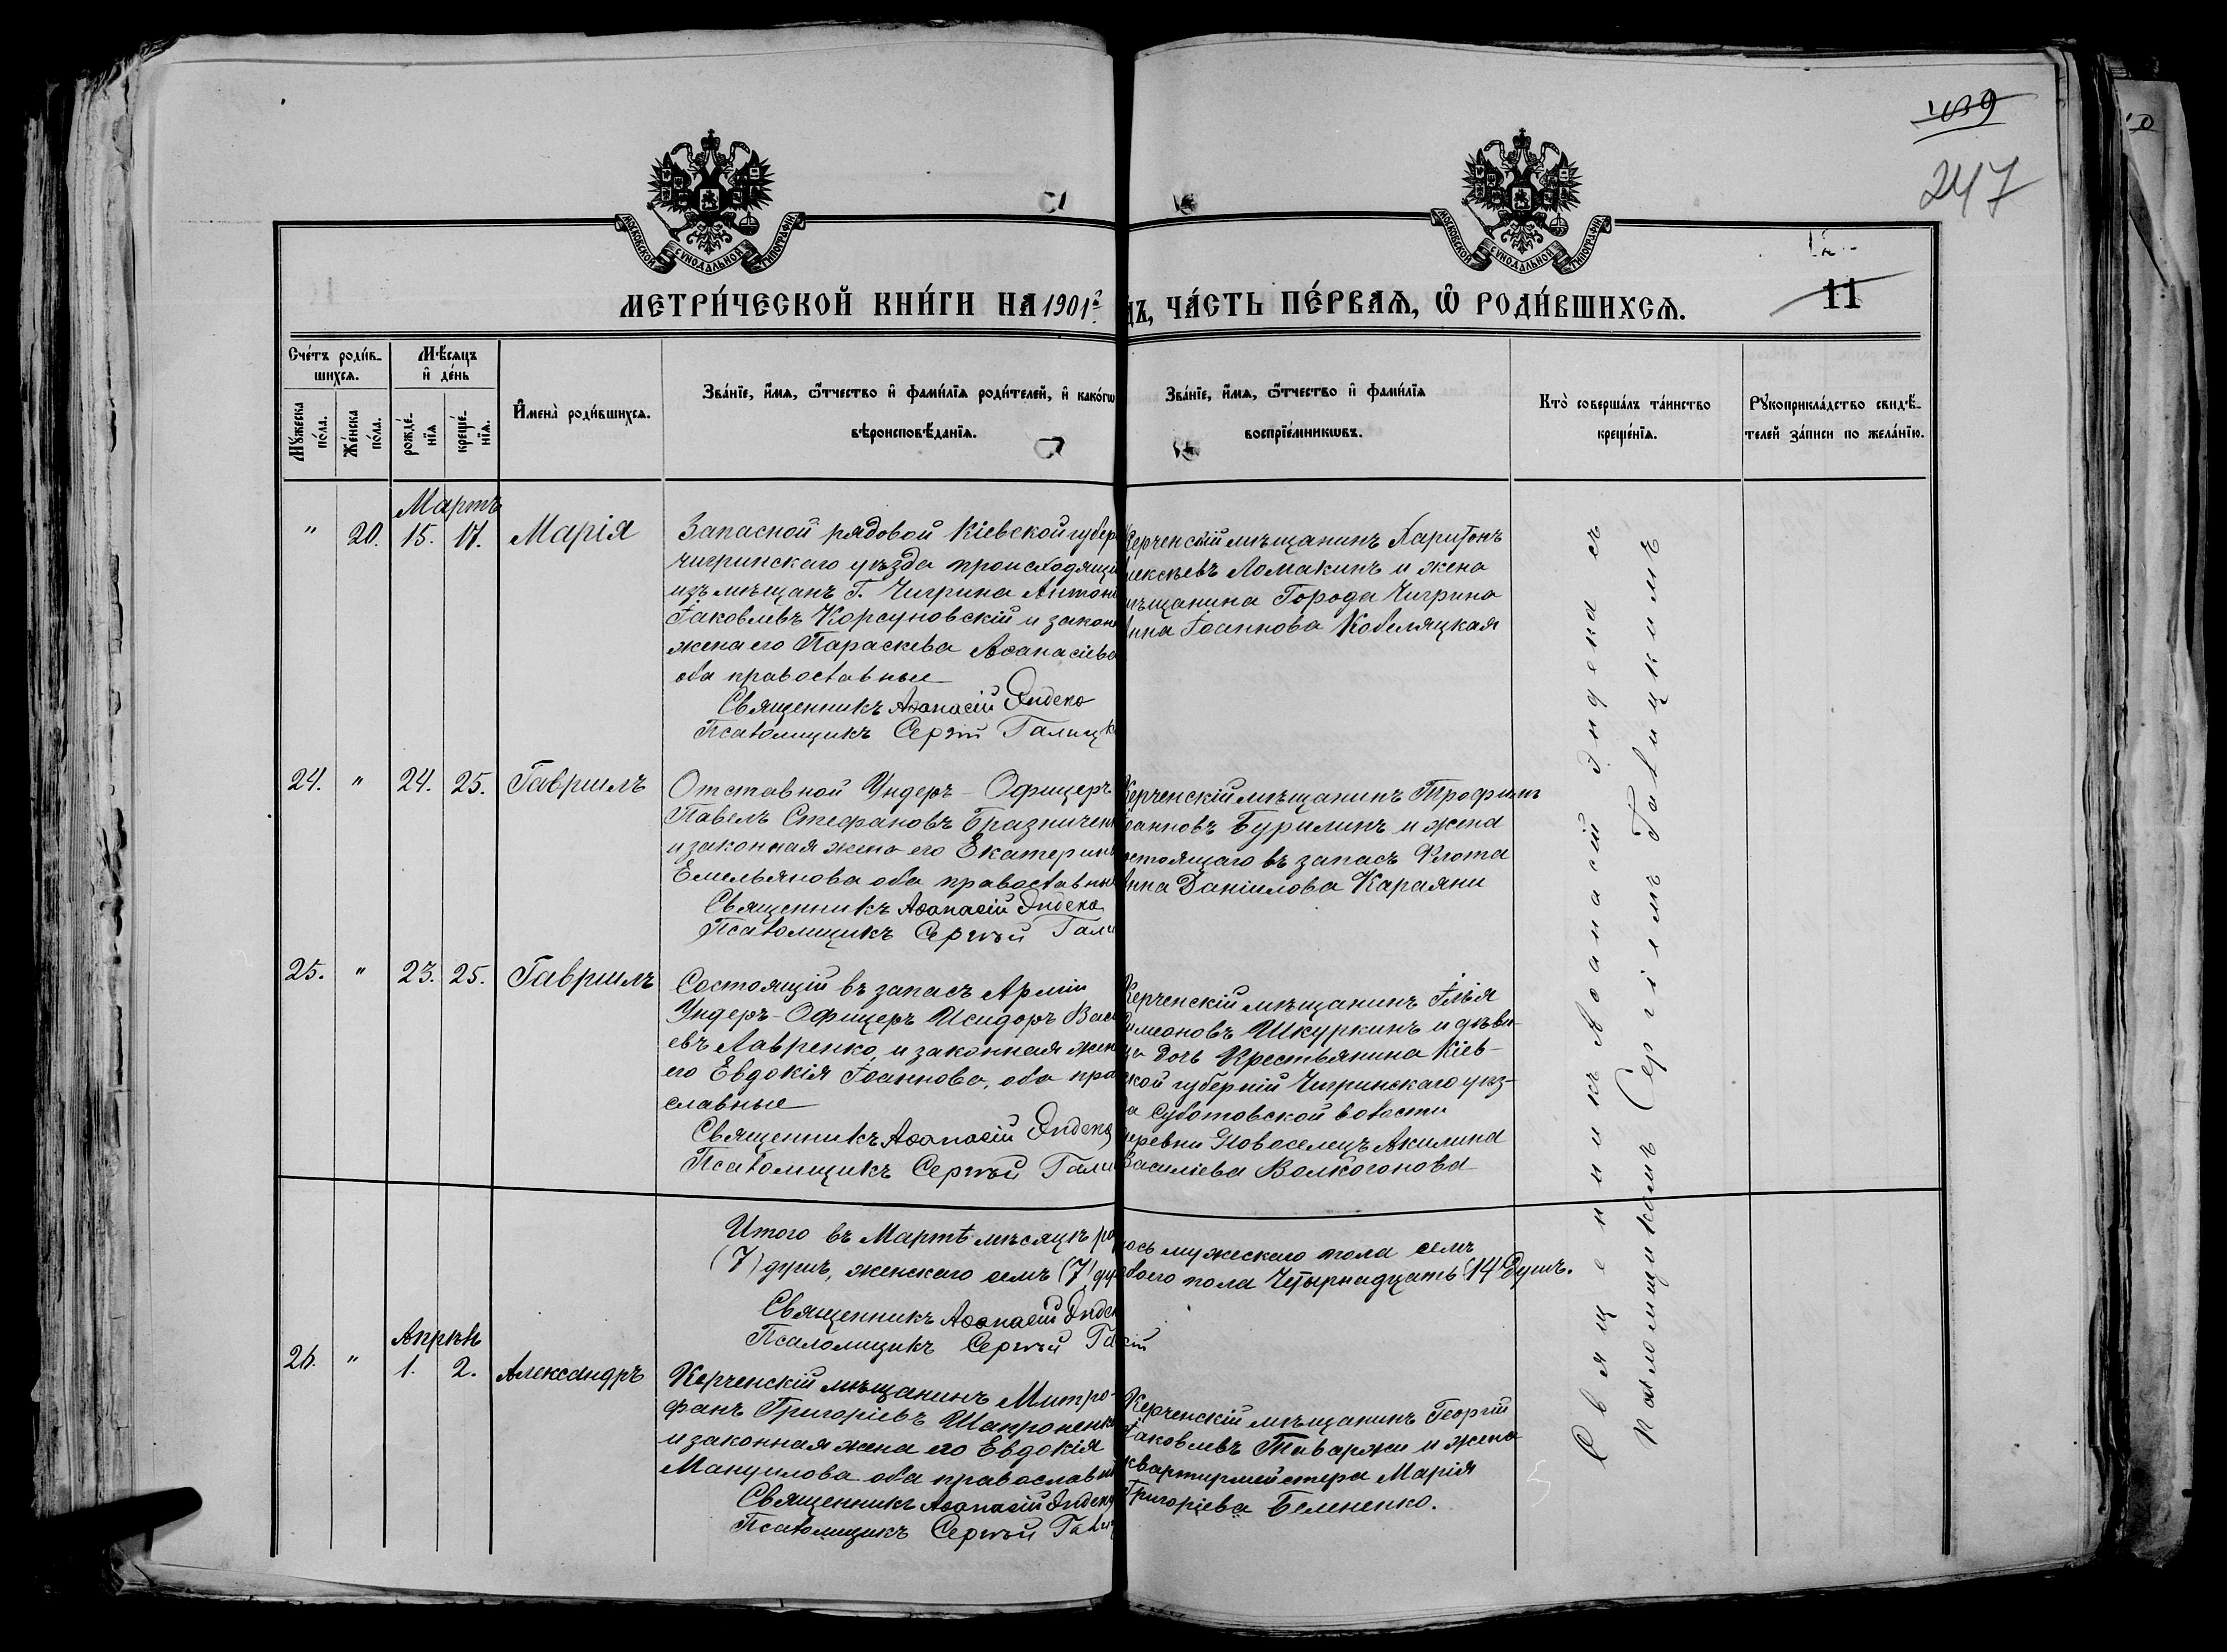 247
МОСКОВСКОЙ СѴНОДАЛЬНОЙ ТИПОГРАФІИ
МОСКОВСКОЙ СѴНОДАЛЬНОЙ ТИПОГРАФІИ
11
МЕТРИ́ЧЕСКОЙ КНИ́ГИ НА 1901
ЧА́СТЬ ПЕ́РВАѦ, Ѽ РОДИ́ВШИХСѦ.
Сче́тъ роди́в-
шихсѧ.
Мꙋжеска по́ла.
Же́нска по́ла.
Мѣ́сѧцъ
и҆ де́нь
рожде́-
нїѧ
креще́-
нїѧ.
И҆мена̀ роди́вшихсѧ.
Зва́нїе, и҆́мѧ, ѻ҆́тчество и҆ фами́лїѧ роди́телей, и҆ како́гѡ
вѣроисповѣ́данїѧ.
Зва́нїе, и҆́мѧ, ѻ҆́тчество и҆ фами́лїѧ
воспрїе́мникѡвъ.
Кто̀ соверша́лъ та́инство
креще́нїѧ.
Рꙋкоприкла́дство свидѣ́-
телей за́писи по жела́нїю.
Мартъ
" 20. 15. 17. Марія
Запасной рядовой Кіевской губер
чигринскаго уѣзда происходящі
изъ мѣщанъ Г. Чигрина Антоні
Іаковлевъ Корсуновскій и закон
жена его Параскева Аѳанасіева
оба православные
Священникъ Аѳанасій Эндека
Псаломщикъ Сергій Галицк
Керченскій мѣщанинъ Харитонъ
лексѣевъ Ломакинъ и жена
мѣщанина Города Чигрина
Анна Іоаннова Кобеляцкая
24. " 24. 25. Гавріилъ
Отставной Ундеръ-Офицеръ
Павелъ Стефановъ Бразничен
и законная жена его Екатерин
Емельянова оба православны
Священникъ Аѳанасій Эндека
Псаломщикъ Сергѣй Гали
Керченскій мѣщанинъ Трофимъ
оанновъ Бурилинъ и жена
остоящаго въ запасѣ Флота
Анна Даніилова Караяни
25. " 23. 25. Гавріилъ
Состоящій въ запасѣ Арміи
Ундеръ-Офицеръ Исидоръ Васи
евъ Лавренко, и законная жен
его Евдокія Іоаннова, оба пра
славные
Священникъ Аѳанасій Эндека
Псаломщикъ Сергѣй Гали
Керченскій мѣщанинъ Ілія
Симеоновъ Шкуркинъ и дѣви-
ца дочь Крестьянина Кіев-
ской губерніи Чигринскаго уѣз-
а Суботовской волости
деревни Новоселецъ Акилина
Василіева Волкогонова
Итого въ Мартѣ мѣсяцѣ ро
(7) душъ, женскаго семь (7) ду
ось мужескаго пола семь
обоего пола Четырнадцать (14) Душъ.
Священникъ Аѳанасій Эндек
Псаломщикъ Сергѣй Га
Апрѣль
26. " 1. 2. Александръ
Керченскій мѣщанинъ Митро-
фанъ Григоріевъ Шапроненко
и законная жена его Евдокія
Мануилова оба православны
Священникъ Аѳанасій Эндека
Псаломщикъ Сергѣй Галиц
Керченскій мѣщанинъ Георгій
Іаковлевъ Таваржи и жена
квартирмейстера Марія
Григоріева Белененко.
Священникъ Аѳанасій Эндека съ
Псаломщикомъ Сергіемъ Галицкимъ